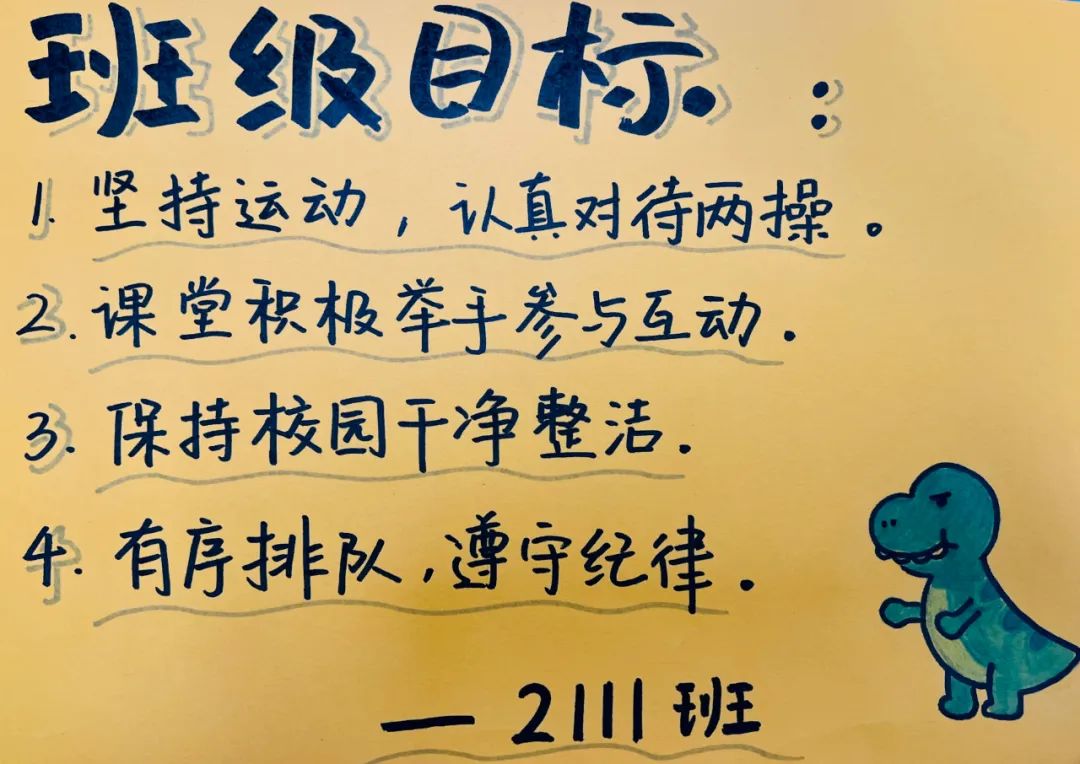 班级目标：
1. 坚持运动，认真对待两操。
2. 课堂积极举手参与互动.
3. 保持校园干净整洁.
4. 有序排队，遵守纪律.
— 2111班